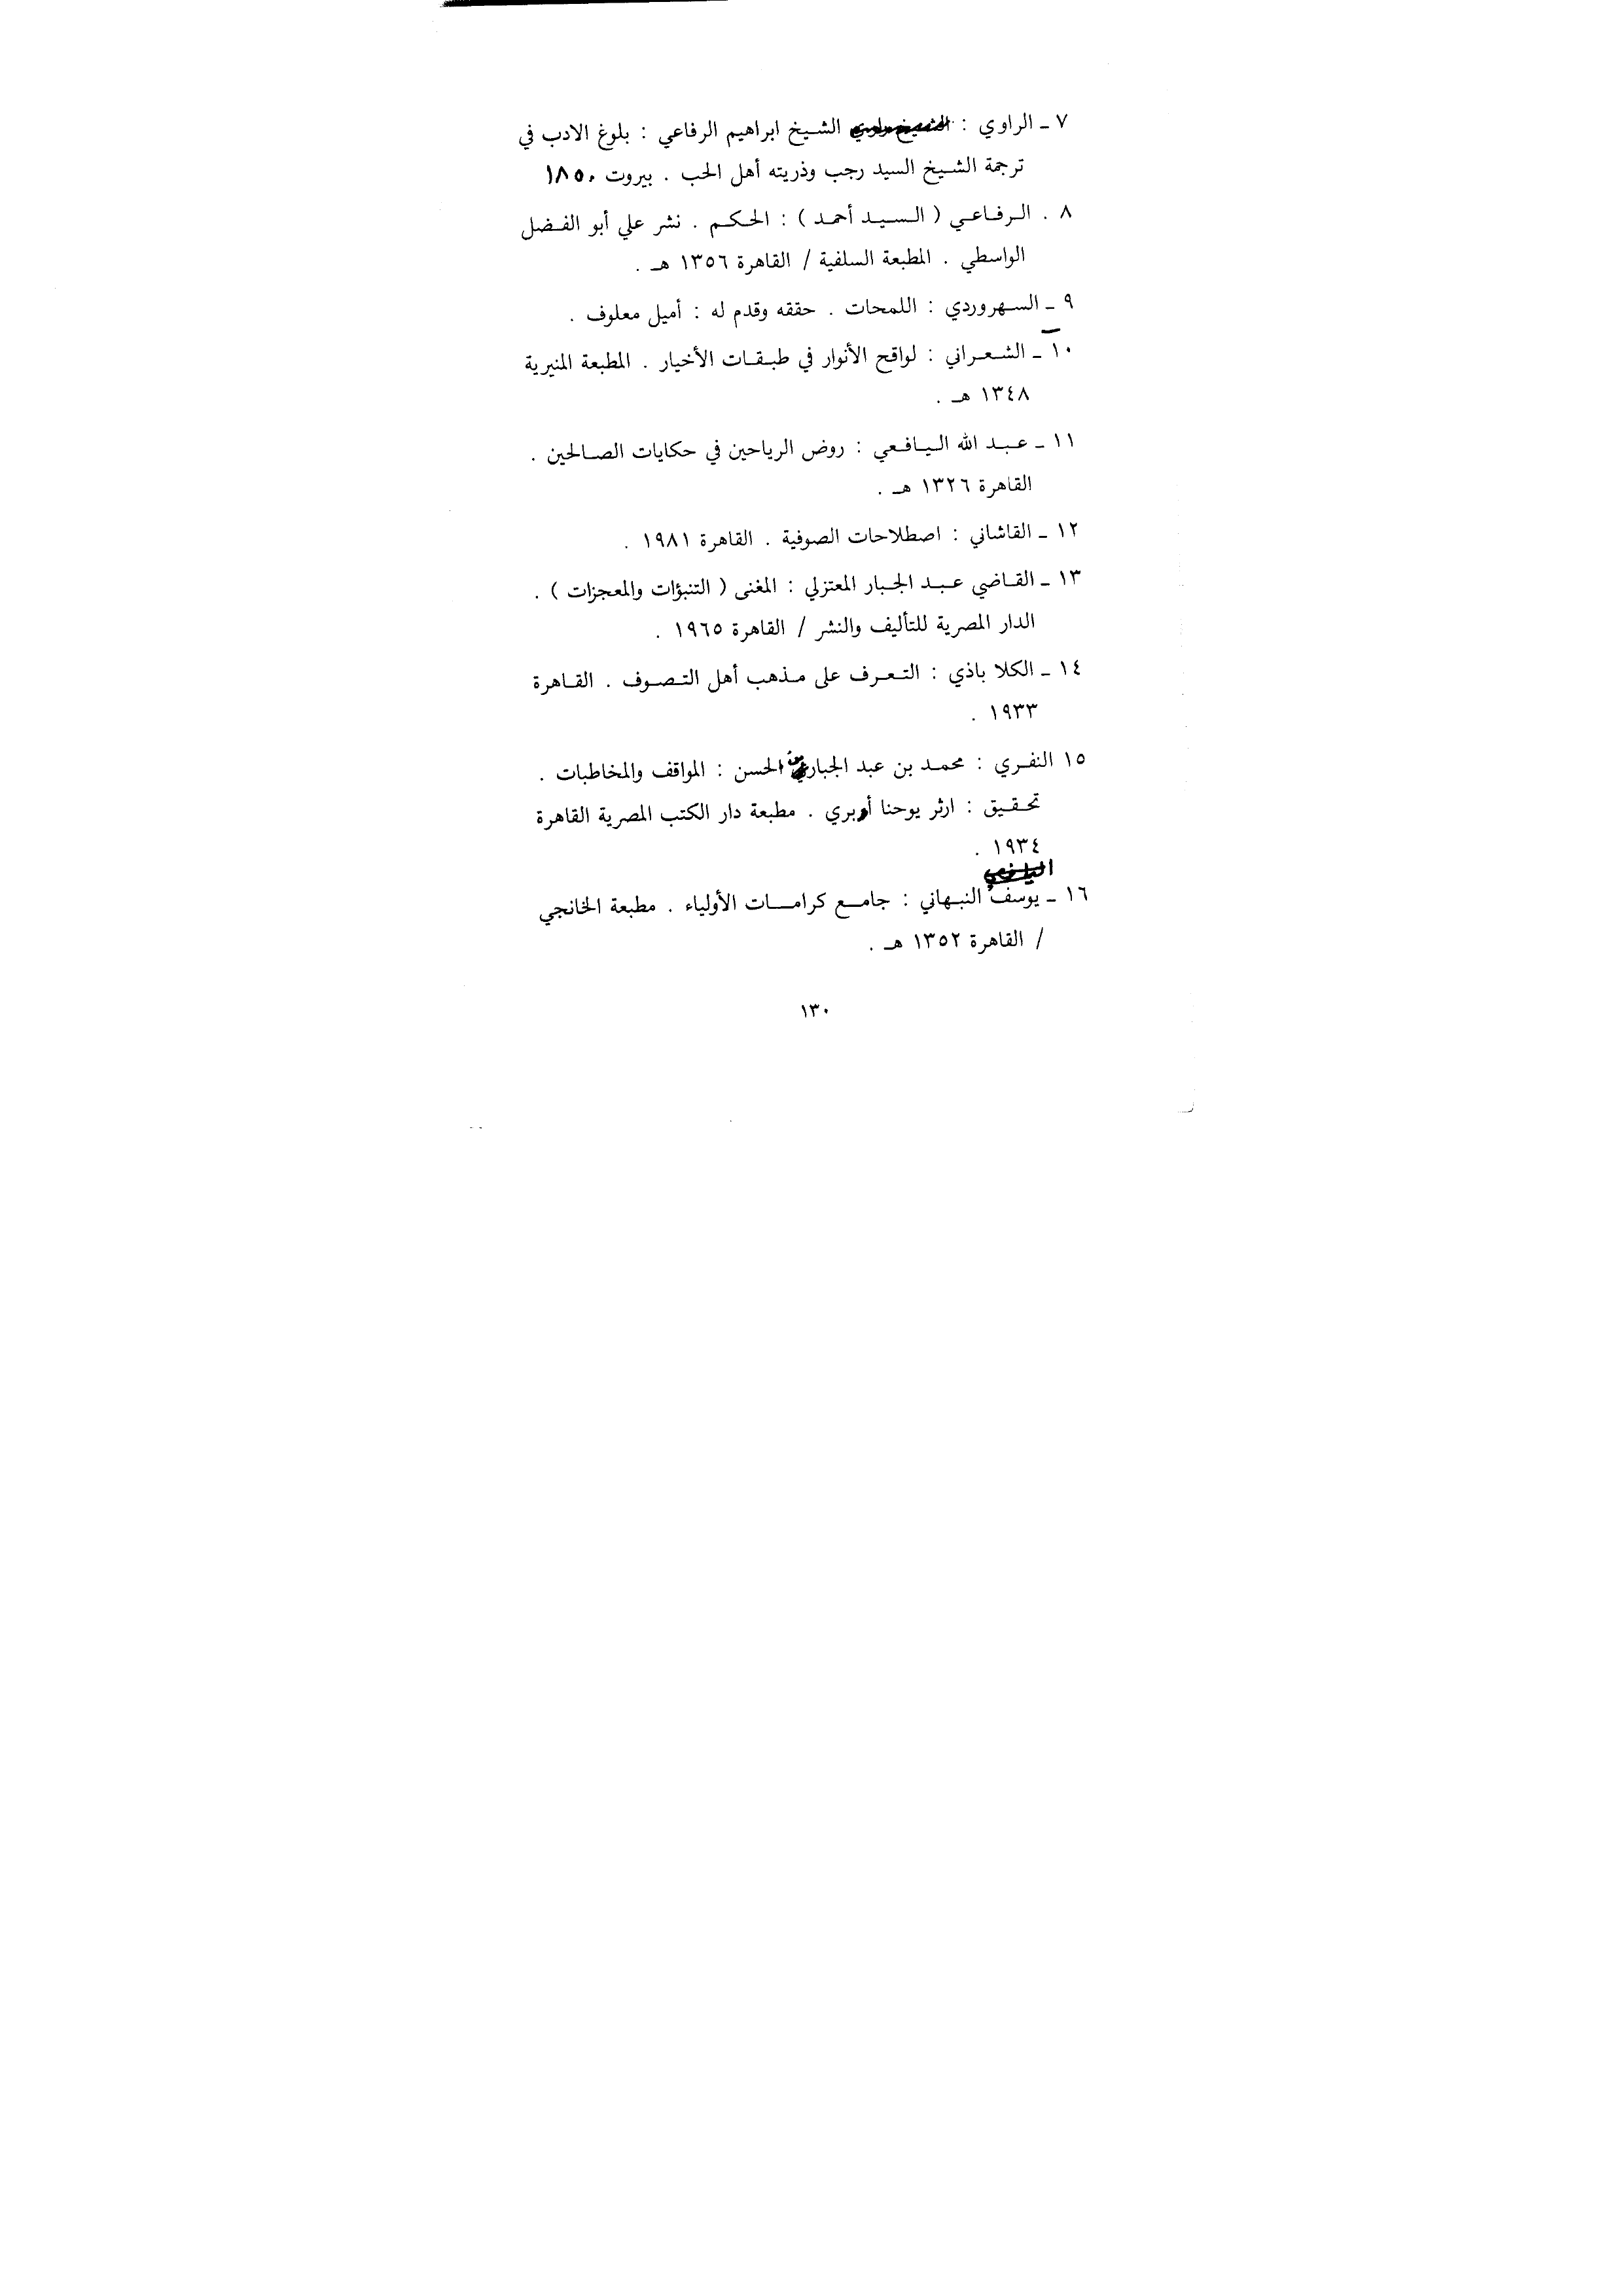 ٧ ـ الراوي : الشيخ ابراهيم الرفاعي : بلوغ الادب في
ترجمة الشيخ السيد رجب وذريته أهل الحب . بيروت ١٨٥٠
٨ . الرفاعي ( السيد أحمد ) : الحكم . نشر علي أبو الفضل
الواسطي . المطبعة السلفية / القاهرة ١٣٥٦ هـ .
٩ ـ السهروردي : اللمحات . حققه وقدم له : أميل معلوف .
١٠ ـ الشعراني : لواقح الأنوار في طبقات الأخيار . المطبعة المنيرية
١٣٤٨ هـ .
١١ ـ عبد الله اليافعي : روض الرياحين في حكايات الصالحين .
القاهرة ١٣٢٦ هـ .
١٢ ـ القاشاني : اصطلاحات الصوفية . القاهرة ١٩٨١ .
١٣ ـ القاضي عبد الجبار المعتزلي : المغنى ( التنبؤات والمعجزات ) .
الدار المصرية للتأليف والنشر / القاهرة ١٩٦٥ .
١٤ ـ الكلا باذي : التعرف على مذهب أهل التصوف . القاهرة
١٩٣٣ .
١٥ النفري : محمد بن عبد الجبار بن الحسن : المواقف والمخاطبات .
تحقيق : ارثر يوحنا أربري . مطبعة دار الكتب المصرية القاهرة
١٩٣٤ .
١٦ ـ يوسف النبهاني : جامع كرامات الأولياء . مطبعة الخانجي
/ القاهرة ١٣٥٢ هـ .
١٣٠